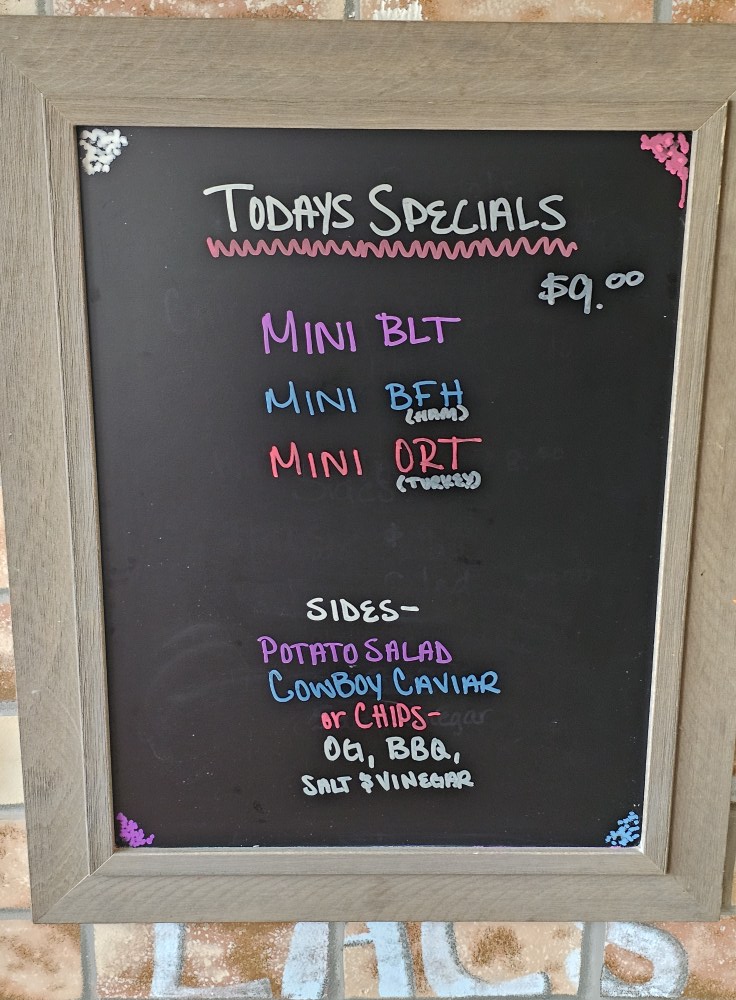 TODAYS SPECIALS
$9.00
MINI BLT
MINI BFH
(HAM)
MINI ORT
(TURKEY)
SIDES-
POTATO SALAD
COWBOY CAVIAR
or CHIPS-
OG, BBQ,
SALT & VINEGAR